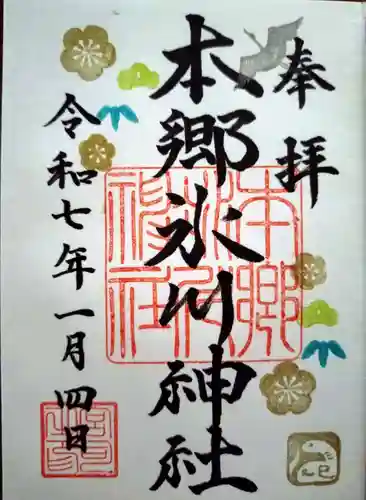 奉拝
本郷氷川神社
令和七年一月四日
本郷氷川神社
巳